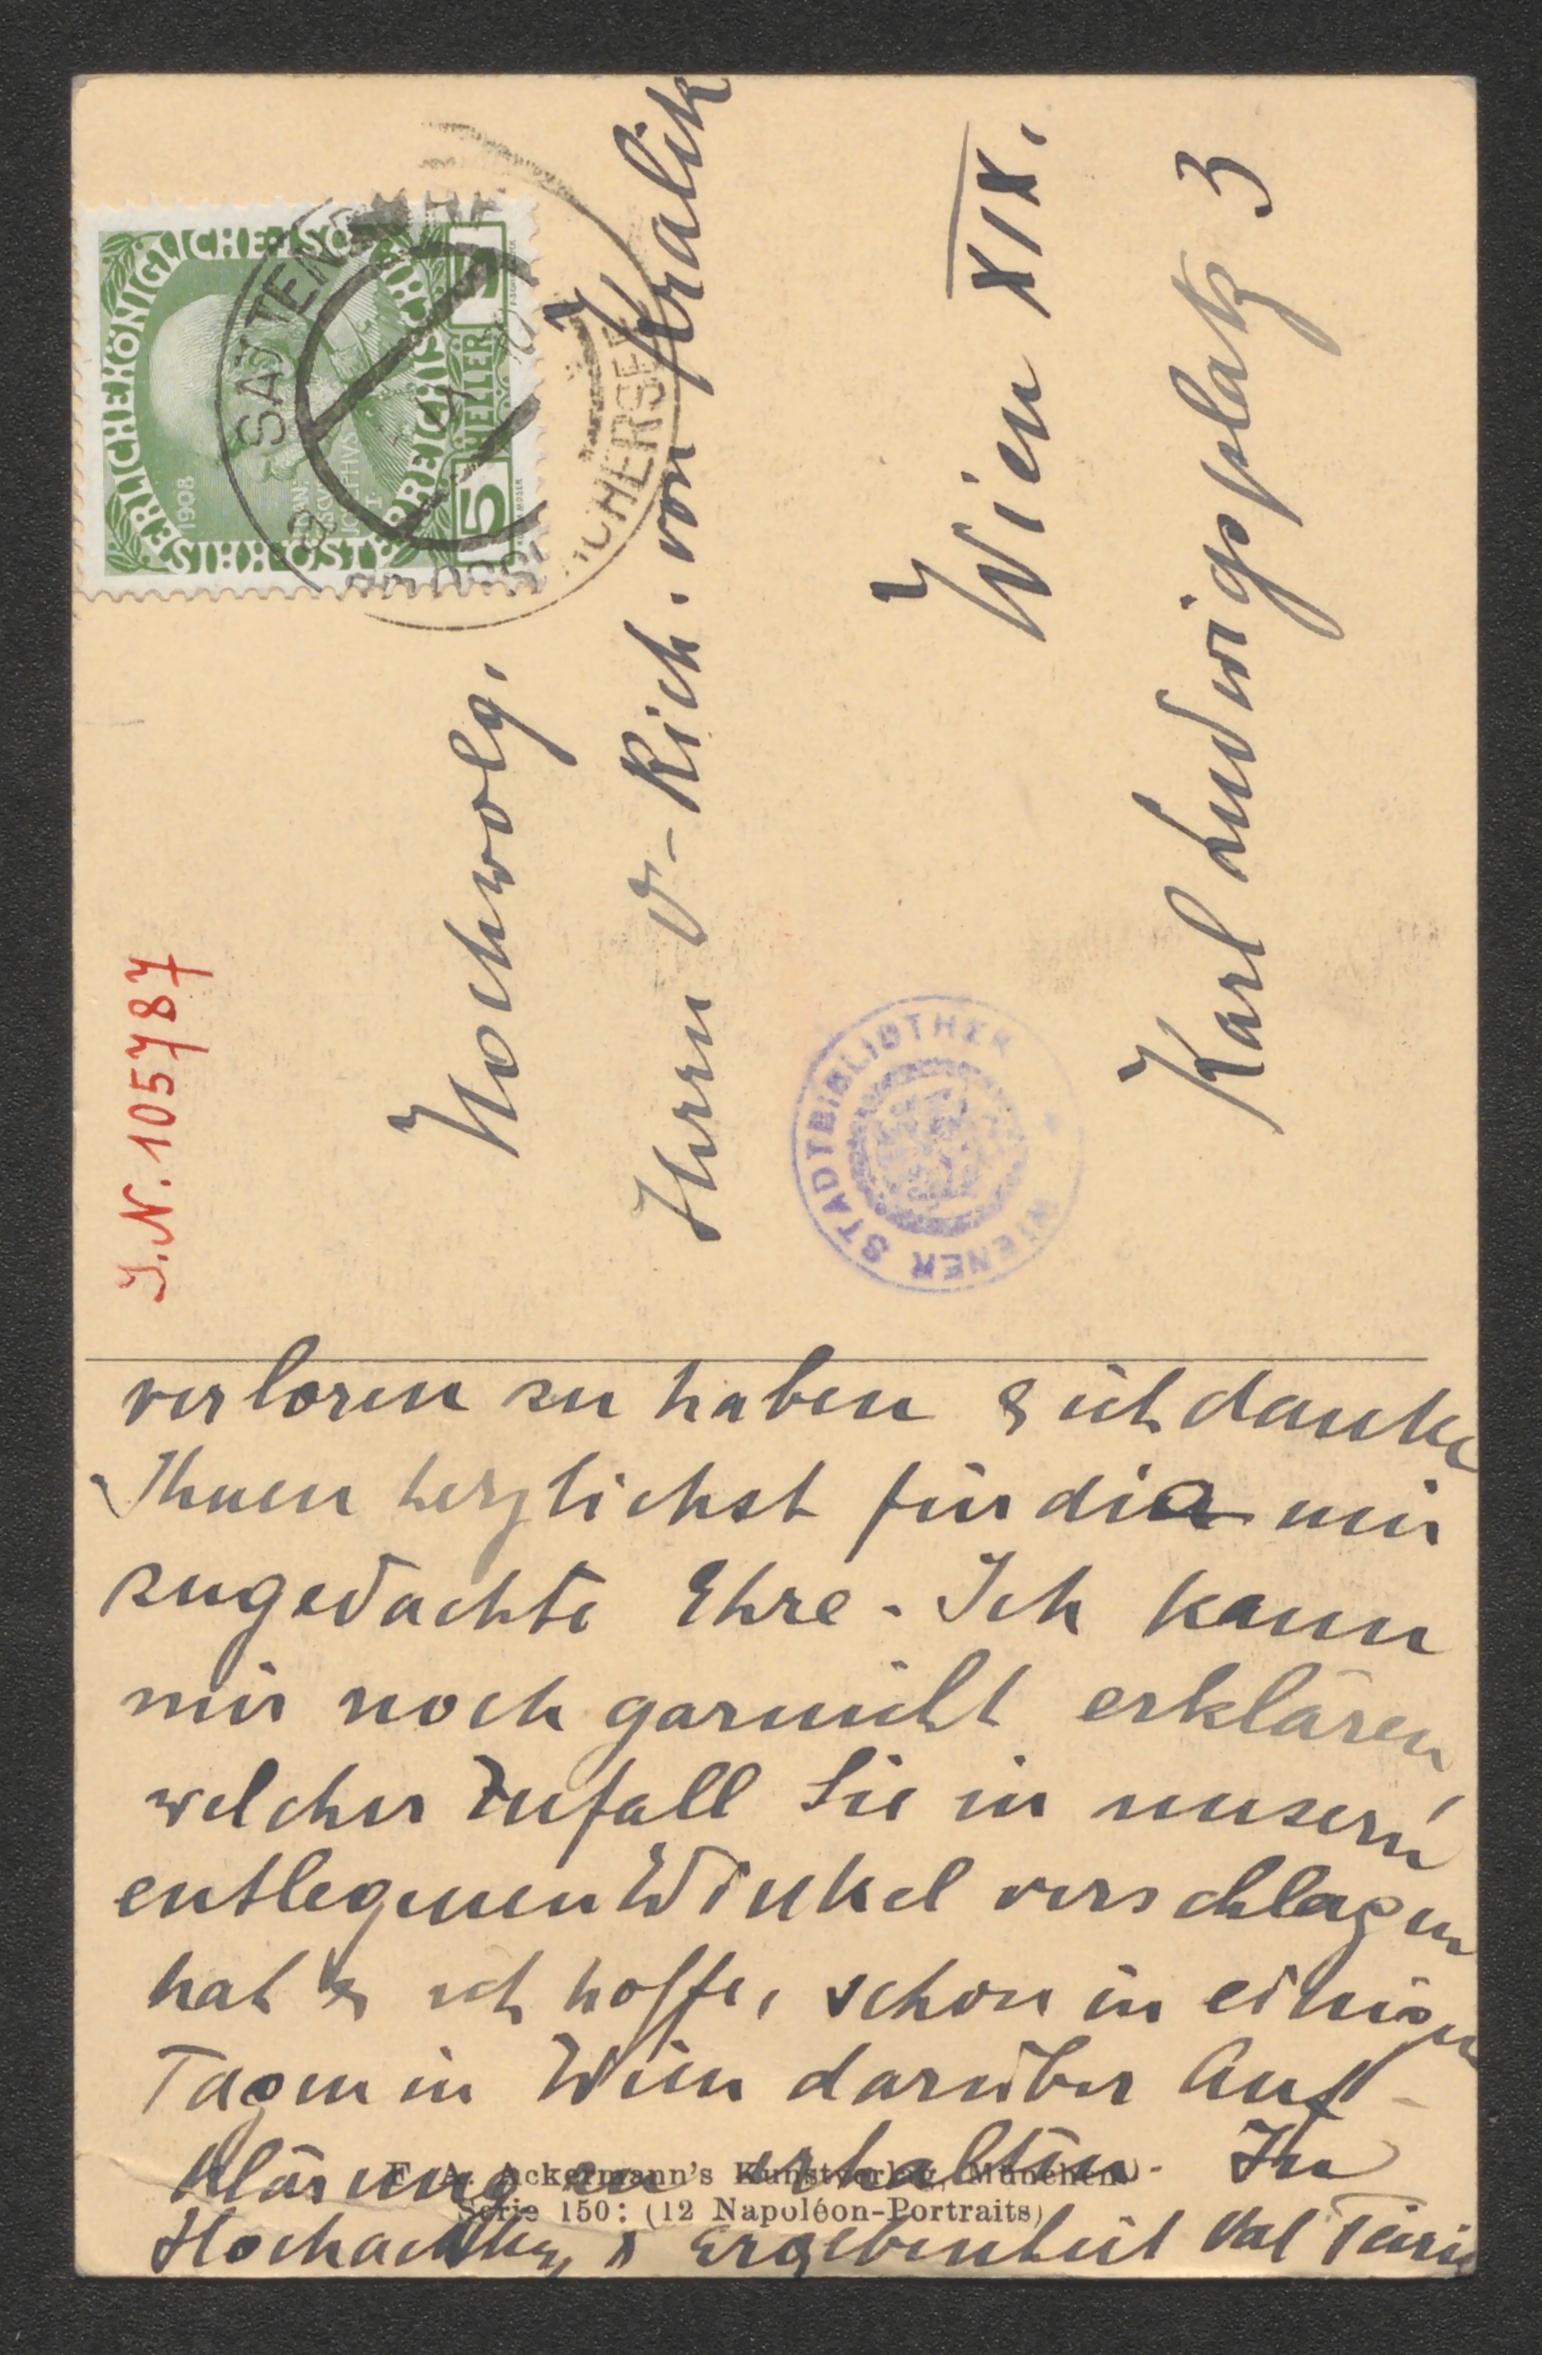 J.N. 105787
Hochwolg.
Herrn D- Rich. von Kralik
Wien XIX.
Karl Ludwigsplatz 3
KAISERLICHE KÖNIGLICHE ÖSTERREICHISCHE
1908
5 HELLER
WIENER STADTBIBLIOTHEK
verloren zu haben & ich danke
Ihnen herzlichst für die mir
zugedachte Ehre. Ich kann
mir noch garnicht erklären
welcher Zufall Sie in unsern
entlegenen Winkel verschlagen
hat & ich hoffe, schon in einigen
Tagen in Wien darüber Auf-
klärung zu erhalten. In
Hochachtg & Ergebenheit Val Teirich
F. A. Ackermann's Kunstverlag, München.
Serie 150: (12 Napoléon-Portraits)